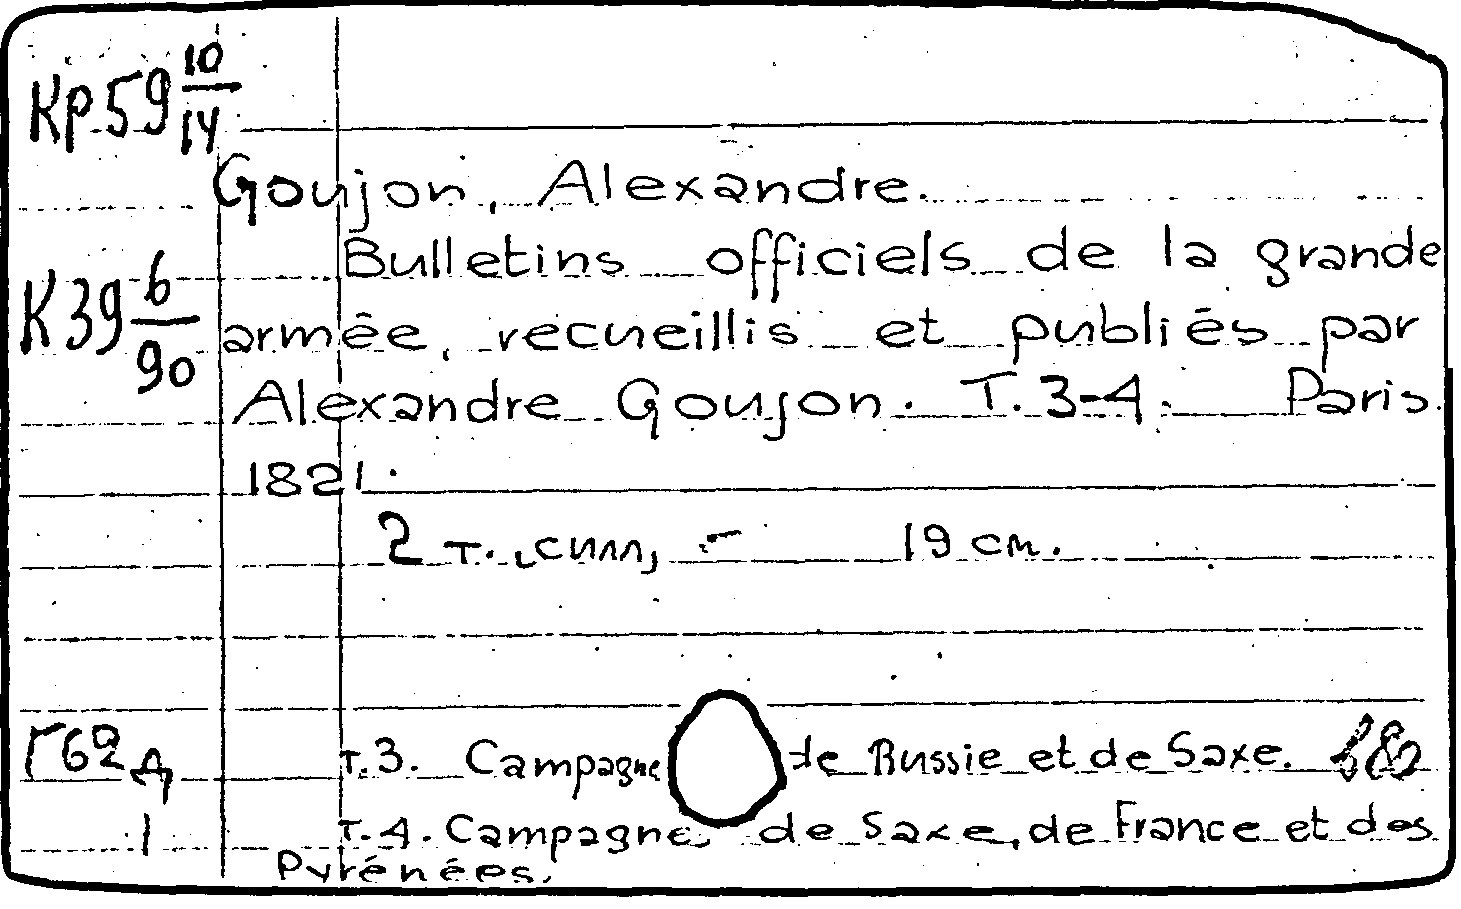 Кр59 10/14
Goujon, Alexandre.
Bulletins officiels de la grande
К39 6/90
armée, recueillis et publiés par
Alexandre Goujon. T. 3-4. Paris
1821.
2 т., 19 см.
Г62д т.3. Campagne de Russie et de Saxe.
1 т.4. Campagne de Saxe, de France et des
Pyrénées.